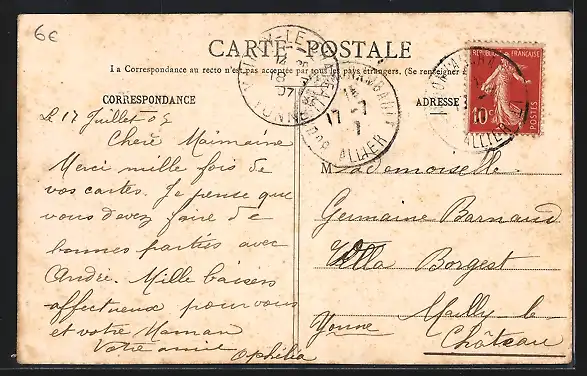 6€
CARTE POSTALE
La Correspondance au recto n'est pas acceptée par tous les pays étrangers. (Se renseigner
CORRESPONDANCE
ADRESSE
REPUBLIQUE FRANÇAISE
10
ALLIER
17 -7
ALLIER
YONNE
Le 17 Juillet 05
Chère Maimaine
Merci mille fois de
vos cartes. Je pense que
vous devez faire de
bonnes parties avec
André. Mille baisers
affectueux pour vous
et votre Maman
Votre amie
Ophélia
Mademoiselle
Germaine Barnaud
Villa Borgest
Mailly le
Château
Yonne